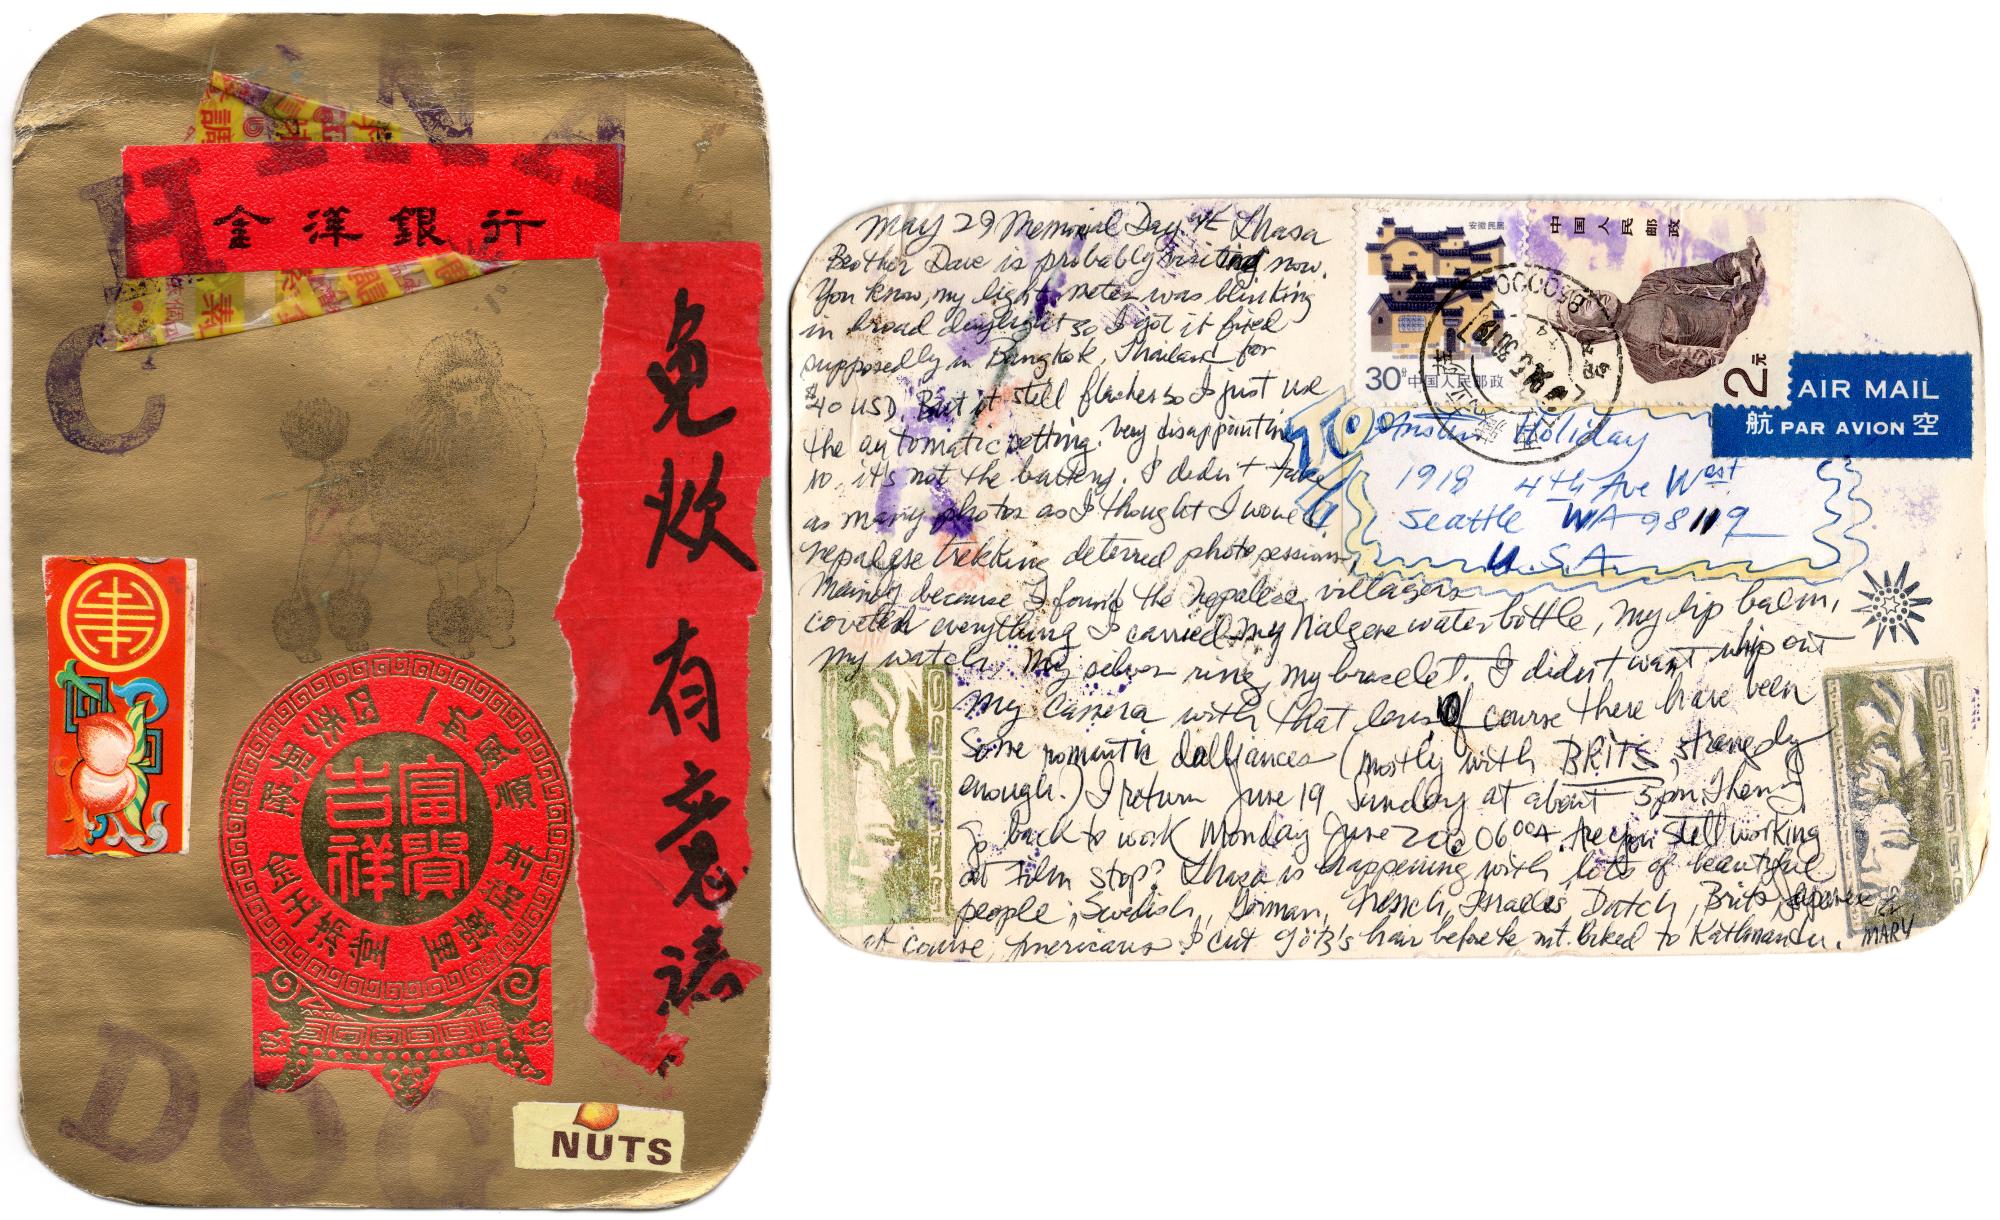 CHINA
金洋銀行
免炊有意請
一帆風順
前程萬里
金玉滿堂
四季興隆
富貴
吉祥
DOG
NUTS
May 29 Memorial Day Lhasa
Brother Dave is probably visiting now.
You know, my light meter was blinking
in broad daylight so I got it fixed
supposedly in Bangkok, Thailand for
$40 USD. But it still flashes so I just use
the automatic setting. Very disappointing
No, it's not the battery. I didn't take
as many photos as I thought I would
nepalese trekking deterred photo sessions,
Mainly because I found the Nepalese villagers
coveted everything I carried - my Nalgene water bottle, my lip balm,
my watch, my silver ring, my bracelet. I didn't want whip out
my camera with that lens. Of course there have been
some romantic dalliances (mostly with BRITS, strangely
enough.) I return June 19 Sunday at about 5pm. Then I
go back to work Monday June 20 @ 0600A. Are you still working
at Film Stop? Lhasa is happening with lots of beautiful
people; Swedish, German, French, Israelis, Dutch, Brits, Japanese
of course, Americans. I cut Götz's hair before he mt. biked to Kathmandu.
MARY
安徽民居
30分 中国人民邮政
中国人民邮政
2元
AIR MAIL
航 PAR AVION 空
TO
Austin Holiday
1918 4th Ave West
Seattle WA 98119
U.S.A